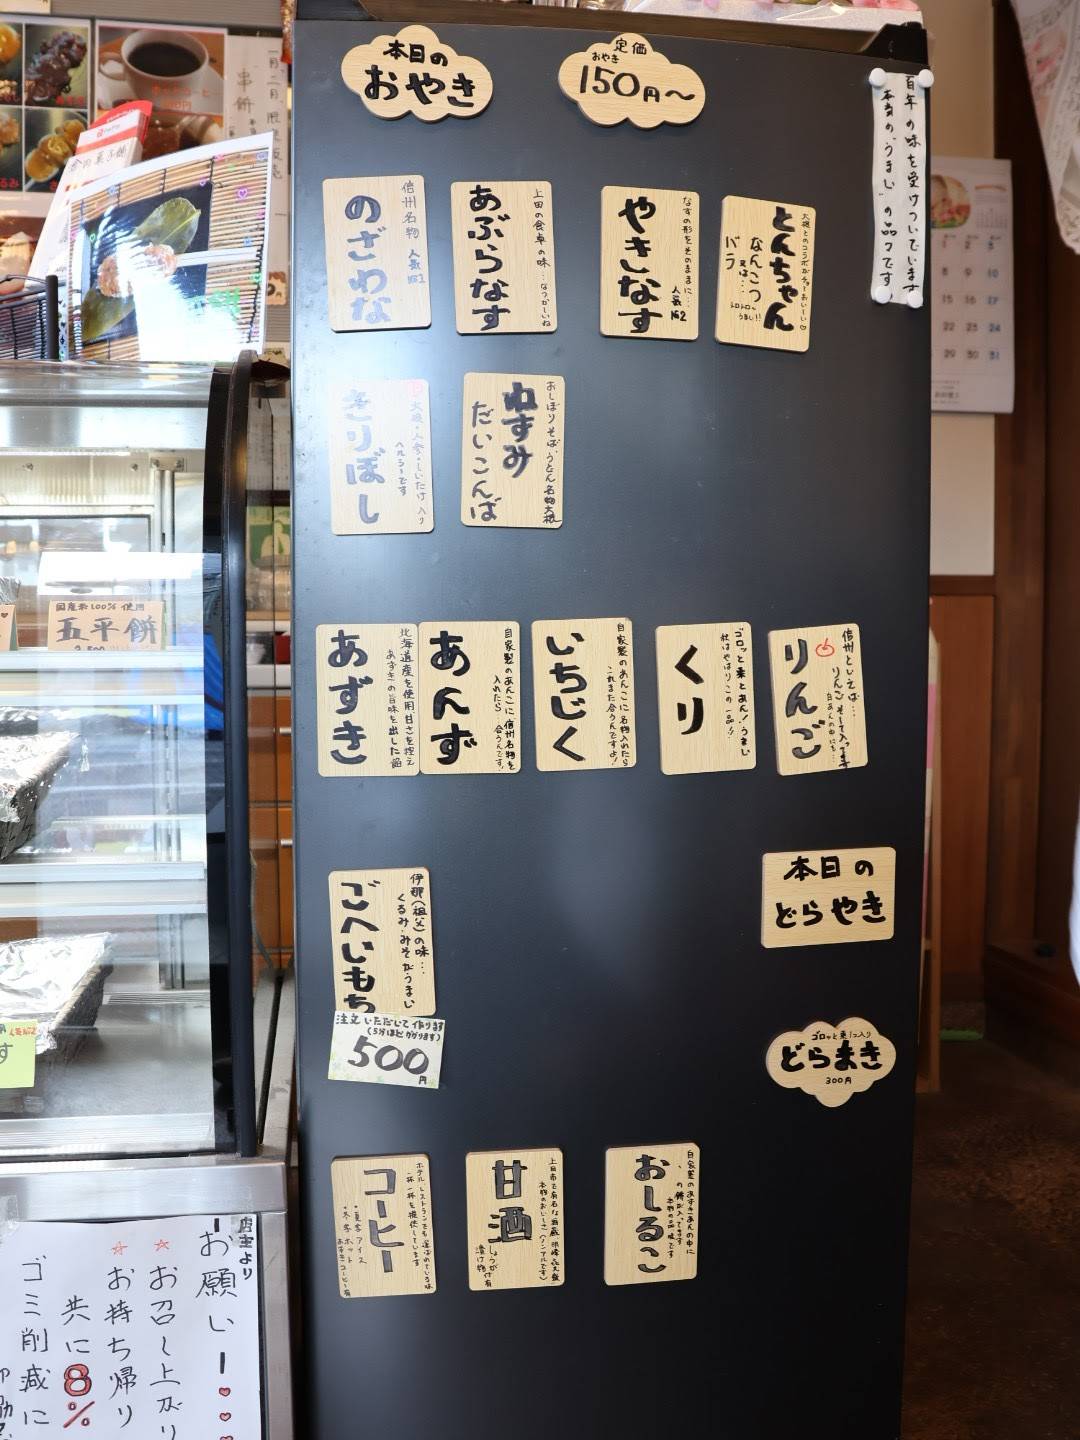 本日の
おやき
定価
おやき
150円〜
百年の味を受けついでいます
本当の"うまい"の品々です
信州名物 人気No1
のざわな
上田の食卓の味…なつかしいね
あぶらなす
なすの形をそのままに…
人気No2
やきなす
大根とのコラボがチョーおいしい♡
とんちゃん
なんこつ
又は…
バラ
トロトロ〜
うまい!!
大根・人参・しいたけ 入り
ヘルシーです
きりぼし
おしぼりそば、うどん名物大根
ねずみ
だいこんば
北海道産を使用、甘さを控え
あずきの旨味を出した餡
あずき
自家製のあんこに信州名物を
入れたら…合うんです!
あんず
自家製のあんこに名物入れたら
これまた合うんですよ!
いちじく
ゴロッと栗とあん!うまい
秋はやはりこの一品!!
くり
信州といえば…
りんごそして入ってます
白あんの中にも…
りんご
伊那(祖父)の味…
くるみ・みそがうまい
ごへいもち
注文いただいて作ります
(5分ほどかかります)
500円
本日の
どらやき
ゴロッと栗1つ入り
どらまき
300円
ホテル レストランでも選ばれている味
一杯一杯を提供しています
・夏季 アイス
・冬季 ホット
あずきコーヒー有
コーヒー
本物のおいしさ(ノンアルです)
甘酒
しょうが付有
漬け物
自家製のあずきあんの中に
おしるこ
国産米100%使用
五平餅
店主より
お願い
お召し上がり
お持ち帰り
共に8%
ゴミ削減に
一月二月、限定販売
串餅